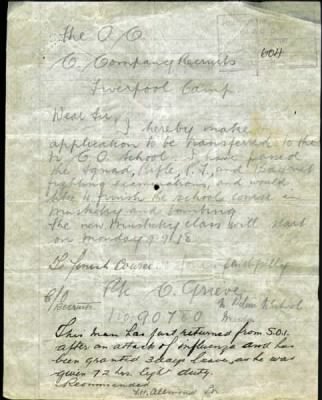 604
The O C
C Company Recruits
Liverpool Camp
Dear Sir,
I hereby make
application to be transferred to the
N. C.O School. I have passed
the Squad, Rifle, P.T. and Bayonet
fighting examinations, and would
like to finish the school course in
musketry and bombing.
The new Musketry class will start
on Monday 9.9.18
To finish Course faithfully
Pte C. Grieve
C/o
Recruits
No 90780
This man has just returned from S.O.I.
after an attack of influenza and has
been granted 3 days leave, as he was
given 72 hrs. light duty.
Recommended